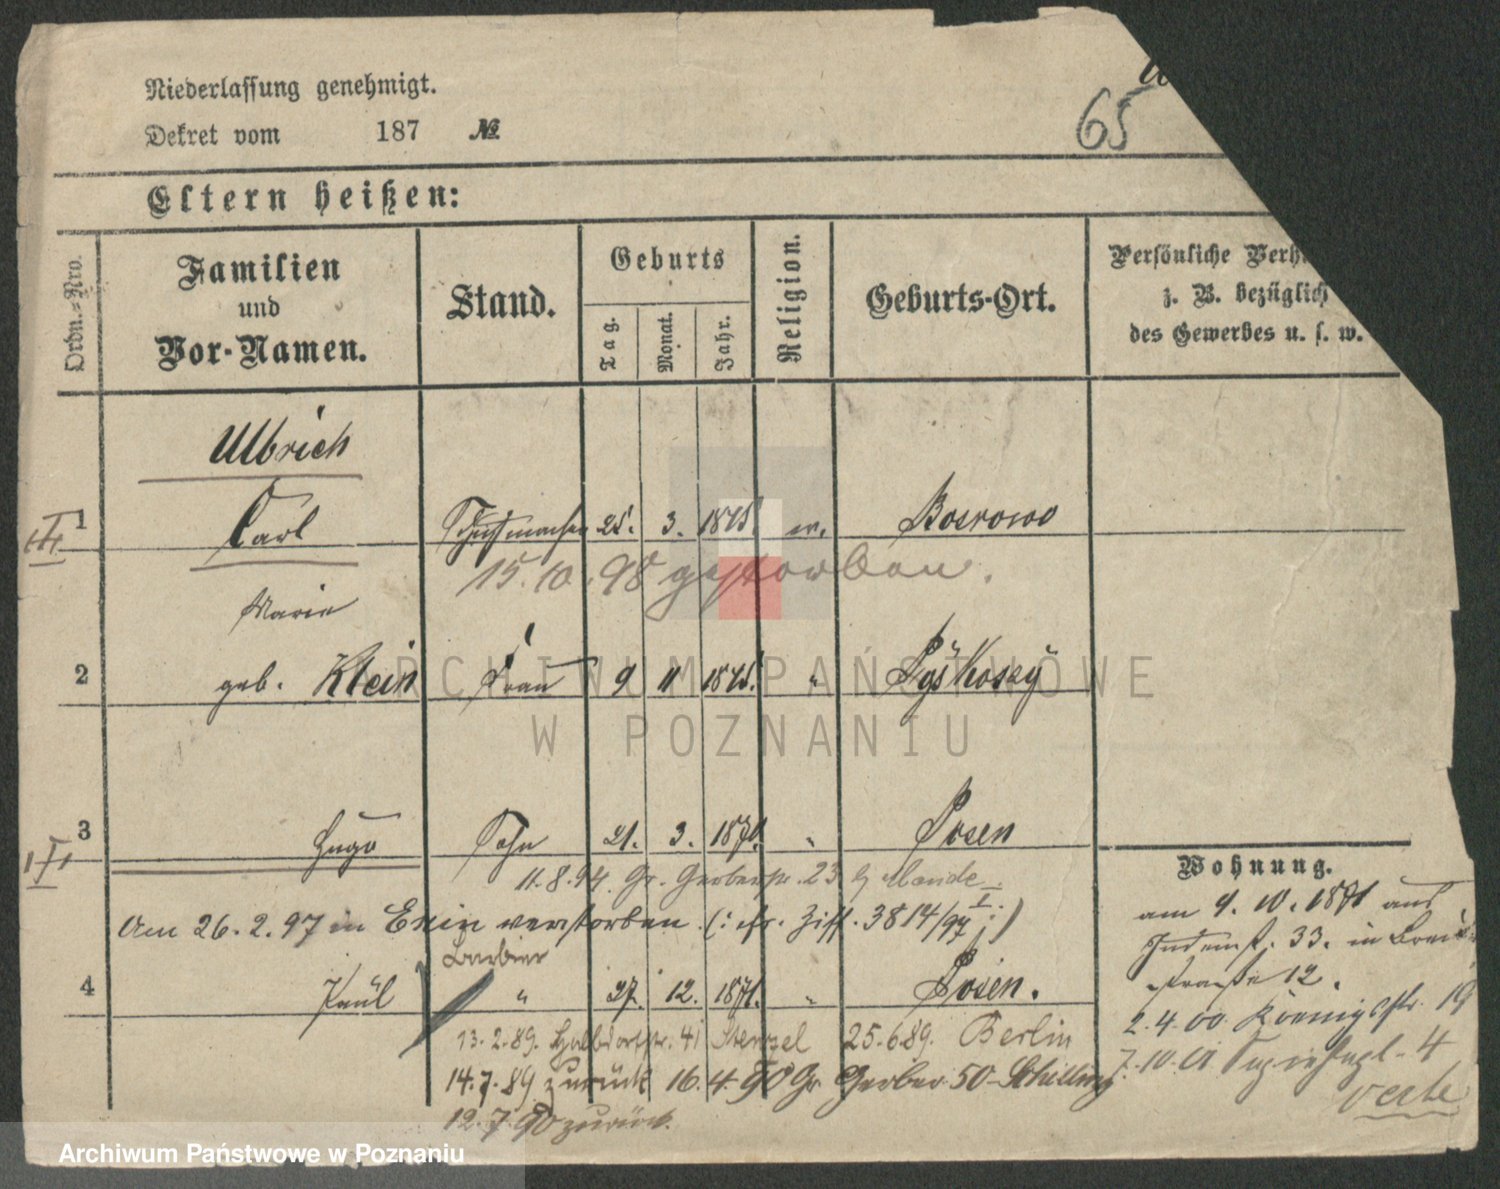 65
Niederlassung genehmigt.
Dekret vom 187 №
Eltern heißen:
Ordn.-Nro.
Familien und Vor-Namen.
Stand.
Geburts
Tag.
Monat.
Jahr.
Religion.
Geburts-Ort.
Persönliche Verh
z. B. bezüglich
des Gewerbes u. s. w.
Ulbrich
1 Carl Schuhmacher 25. 3. 1845 ev.
15.10.98 gestorben.
Marie
2 geb. Klein Frau 9 11 1845. "
3 Hugo Sohn 21. 3. 1870. " Posen
11.8.94. Gr. Gerberstr. 23 b/ Mande
Am 26.2.97 in Exin verstorben (: cfr. Ziff. 3814/97 I :)
Barbier
4 Paul " 27. 12. 1871. " Posen.
13.2.89. Halbdorfstr. 41 Stenzel 25.6.89. Berlin
14.7.89 zurück 16.4.90 Gr. Gerber 50 Schilling
12.7.90 zurück.
Wohnung.
am 9. 10. 1871 aus
Judenst. 33. in Breite-
straße 12.
2.4.00 Königsstr. 19
7.10.01 4
verte
ARCHIWUM PAŃSTWOWE
W POZNANIU
Archiwum Państwowe w Poznaniu